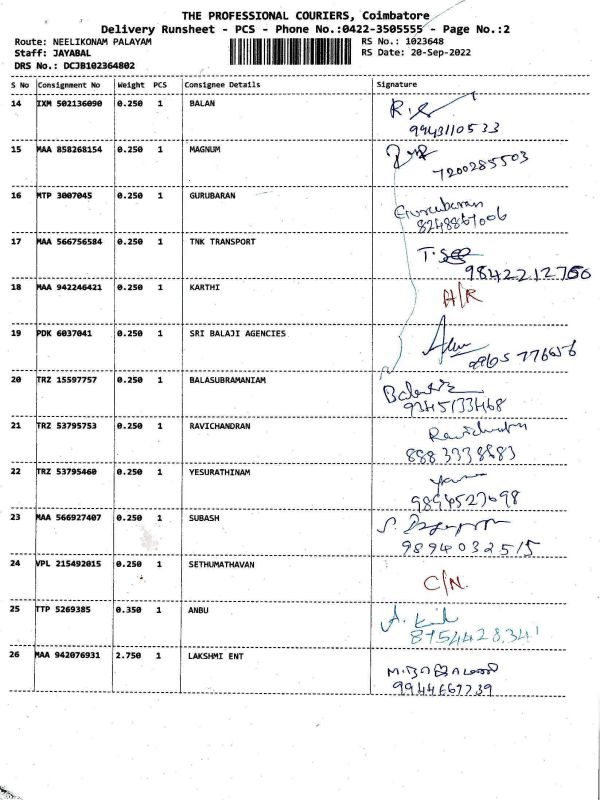 THE PROFESSIONAL COURIERS, Coimbatore
Delivery Runsheet - PCS - Phone No.:0422-3505555 - Page No.:2
Route: NEELIKONAM PALAYAM RS No.: 1023648
Staff: JAYABAL RS Date: 20-Sep-2022
DRS No.: DCJB102364802
S No Consignment No Weight PCS Consignee Details Signature
14 IXM 502136090 0.250 1 BALAN
9943110533
15 MAA 858268154 0.250 1 MAGNUM
7200285503
16 MTP 3007045 0.250 1 GURUBARAN Gurubaran
8248867006
17 MAA 566756584 0.250 1 TNK TRANSPORT
9842212756
18 MAA 942246421 0.250 1 KARTHI A/R
19 PDK 6037041 0.250 1 SRI BALAJI AGENCIES
20 TRZ 15597757 0.250 1 BALASUBRAMANIAM
9345133468
21 TRZ 53795753 0.250 1 RAVICHANDRAN
8883338883
22 TRZ 53795460 0.250 1 YESURATHINAM
9894527698
23 MAA 566927407 0.250 1 SUBASH
9894032515
24 VPL 215492015 0.250 1 SETHUMATHAVAN C/N.
25 TTP 5269385 0.350 1 ANBU
8754428341
26 MAA 942076931 2.750 1 LAKSHMI ENT
9944667739